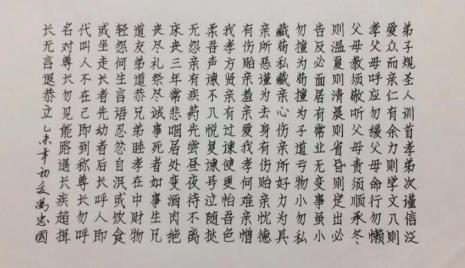 弟子规圣人训首孝弟次谨信泛
爱众而亲仁有余力则学文入则
孝父母呼应勿缓父母命行勿懒
父母教须敬听父母责须顺承冬
则温夏则清晨则省昏则定出必
告反必面居有常业无变事虽小
勿擅为苟擅为子道亏物小勿私
藏苟私藏亲心伤亲所好力为具
亲所恶谨为去身有伤贻亲忧德
有伤贻亲羞亲爱我孝何难亲憎
我孝方贤亲有过谏使更怡吾色
柔吾声谏不入悦复谏号泣随挞
无怨亲有疾药先尝昼夜侍不离
床丧三年常悲咽居处变酒肉绝
丧尽礼祭尽诚事死者如事生兄
道友弟道恭兄弟睦孝在中财物
轻怨何生言语忍忿自泯或饮食
或坐走长者先幼者后长呼人即
代叫人不在己即到称尊长勿呼
名对尊长勿见能路遇长疾趋揖
长无言退恭立 乙未年初夏冯忠国